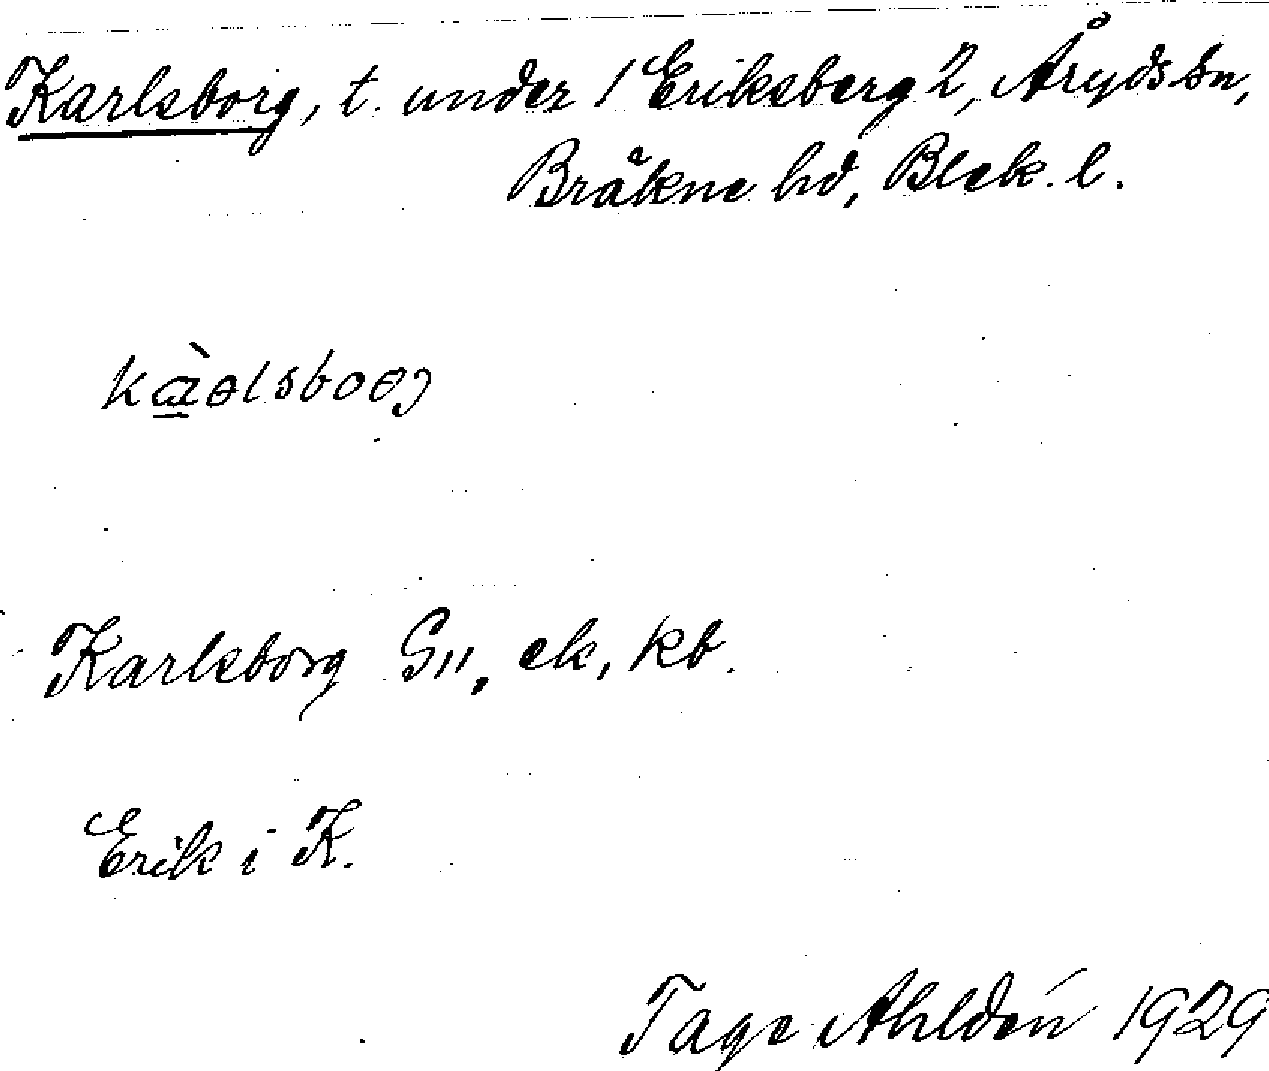 Karlsborg, t. under 1 Eriksberg 2, Åryds sn,
Bräkne hd, Blek. l.
kàɵlsboɵg
Karlsborg G11, ek, kb.
Erik i K.
Tage Ahldén 1929